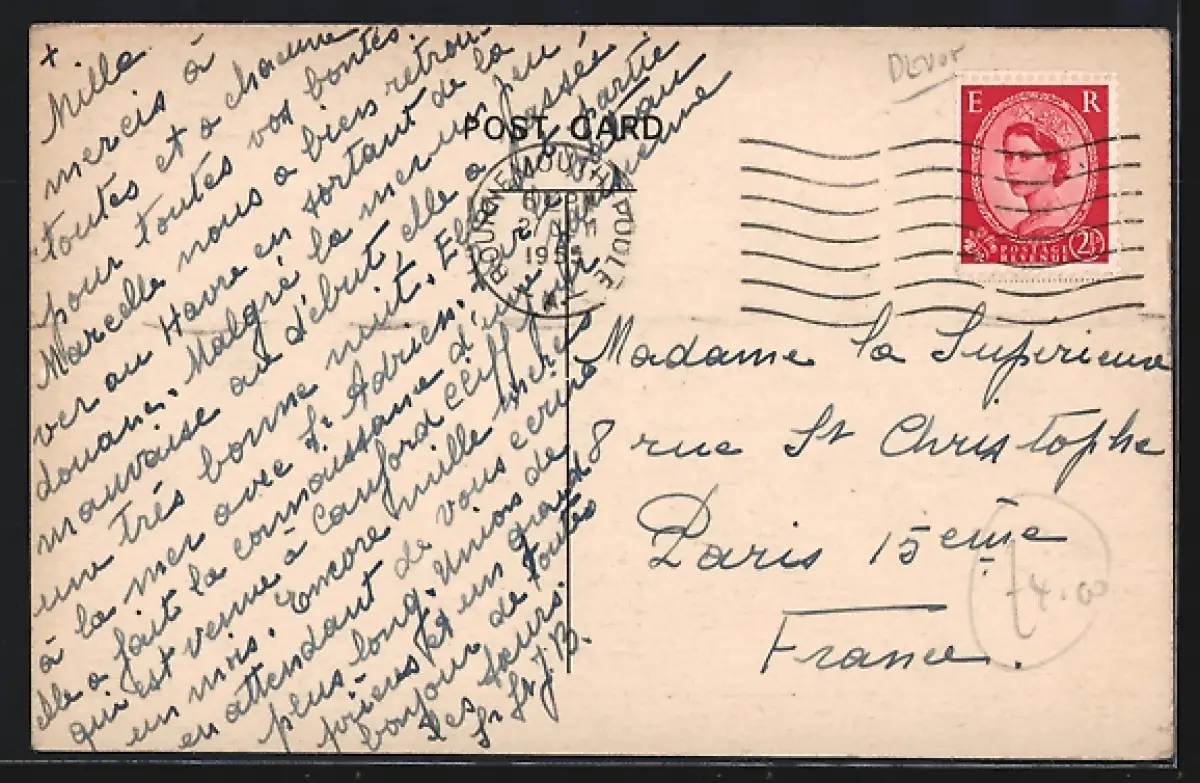 +
Mille
mercis à
toutes et a chacune
pour toutes vos bontés.
Marcelle nous a bien retrou-
ver au Havre en sortant de la
douane. Malgré la mer un peu
mauvaise au début, elle a passée
une très bonne nuit. Elle est partie
à la mer avec Sr Adrien, sur le
elle a fait la connaissance d'une
qui est venue à Canford Cliff pour
un mois. Encore mille mercis
en attendant de vous écrire
plus long. Union de
prières et un grand
bonjour de toutes
les sœurs.
Sr St J. B.
POST CARD
BOURNEMOUTH POOLE
1955
DEVON
E R
POSTAGE
REVENUE
2½
Madame la Supérieure
8 rue St Christophe
Paris 15ème
France.
4.00